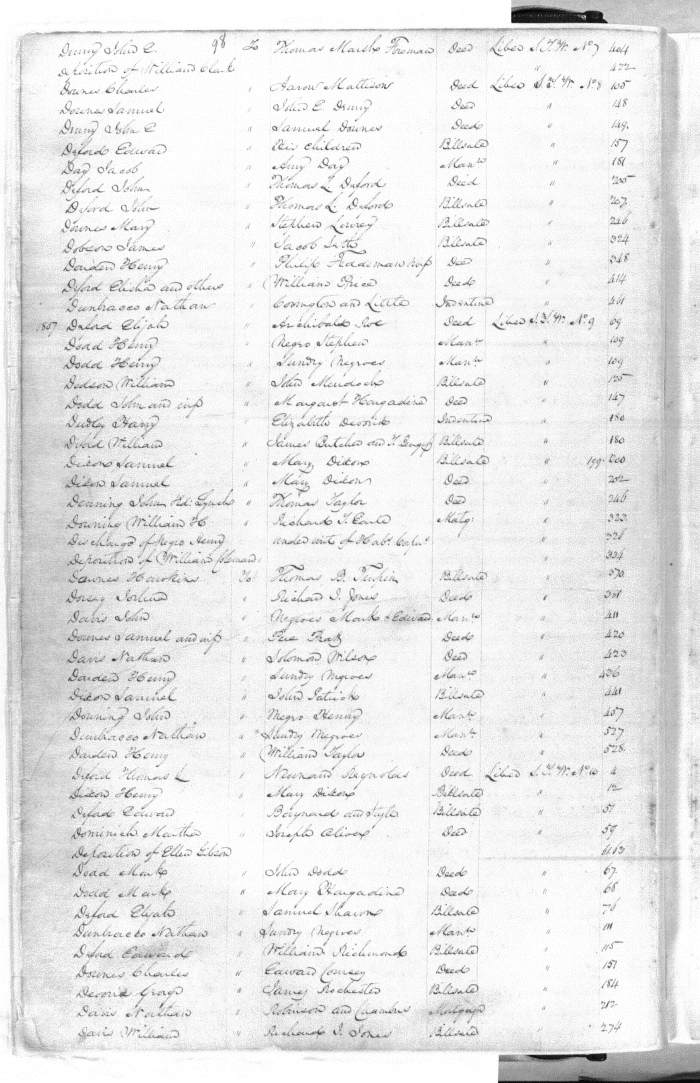 98
Denny John E. To Thomas Marsh Foreman Deed Liber J.T.W. No 7 404
Deposition of William Clark 422
Downes Charles " Aaron Mattison Deed Liber J.T.W. No 8 105
Downes Samuel " John E Denny Deed " 148
Denny John E " Samuel Downes Deed " 149
Diford Edward " His Children Billsale " 157
Day Jacob " Amy Day Mann " 181
Diford John " Thomas L Diford Deed " 205
Diford John " Thomas L Diford Billsale " 207
Downes Mary " Stephen Lowrey Billsale " 246
Dobson James " Jacob Billsale " 324
Darden Henry " Philip Feddeman wife Deed " 348
Diford Elisha and others " William Price Deed " 414
Dunbracco Nathan " Covington and Little Indenture " 461
1807 Diford Elijah " Archibald Roe Deed Liber J.T.W. No 9 69
Dodd Henry " Negro Stephen Mann " 109
Dodd Henry " Sundry Negroes Mann " 109
Dodson William " John Murdoch Billsale " 125
Dodd John and wife " Margaret Hargadine Deed " 147
Dudley Harry " Elizabeth Indenture " 180
Diford William " James Butcher and T. Billsale " 180
Dixon Samuel " Mary Dixon Billsale " 199. 200
Dixon Samuel " Mary Dixon Deed " 202
Denning John " Thomas Taylor Deed " 246
Downing William H " Richard T. Earle Matg: " 323
Discharge of Negro Henry under writ of Habs Corps " 326
Deposition of William " 334
Dawnes Hawkins To Thomas B. Turpin Billsale " 370
Dorsey " Richard I. Jones Deed " 381
Davis John " Negroes Mark & Edward Mann " 411
Downes Samuel and wife " Deed " 420
Davis Nathan " Solomon Wilcox Deed " 423
Darden Henry " Sundry Negroes Mann " 436
Dixon Samuel " John Patrick Billsale " 441
Downing John " Negro Henry Mann " 457
Dunbracco Nathan " Sundry Negroes Mann " 527
Darden Henry " William Taylor Deed " 528
Diford Thomas L " Reynolds Deed Liber J.T.W. No 10 4
Dixon Henry " Mary Dixon Billsale " 12
Diford Edward " Boynard and Billsale " 51
Dominich Martha " Joseph Oliver Deed " 59
Deposition of Ellen Gibson 61.63
Dodd Mark " John Dodd Deed " 67
Dodd Mark " Mary Hargadine Deed " 68
Diford Elijah " Samuel Billsale " 76
Dunbracco Nathan " Sundry Negroes Mann " 111
Diford Edward " William Richmond Billsale " 115
Downes Charles " Edward Comegy Deed " 157
" James Rochester Billsale " 184
Davis Nathan " Robinson and Mortgage " 212
Davis William " Richard I. Jones Billsale " 274